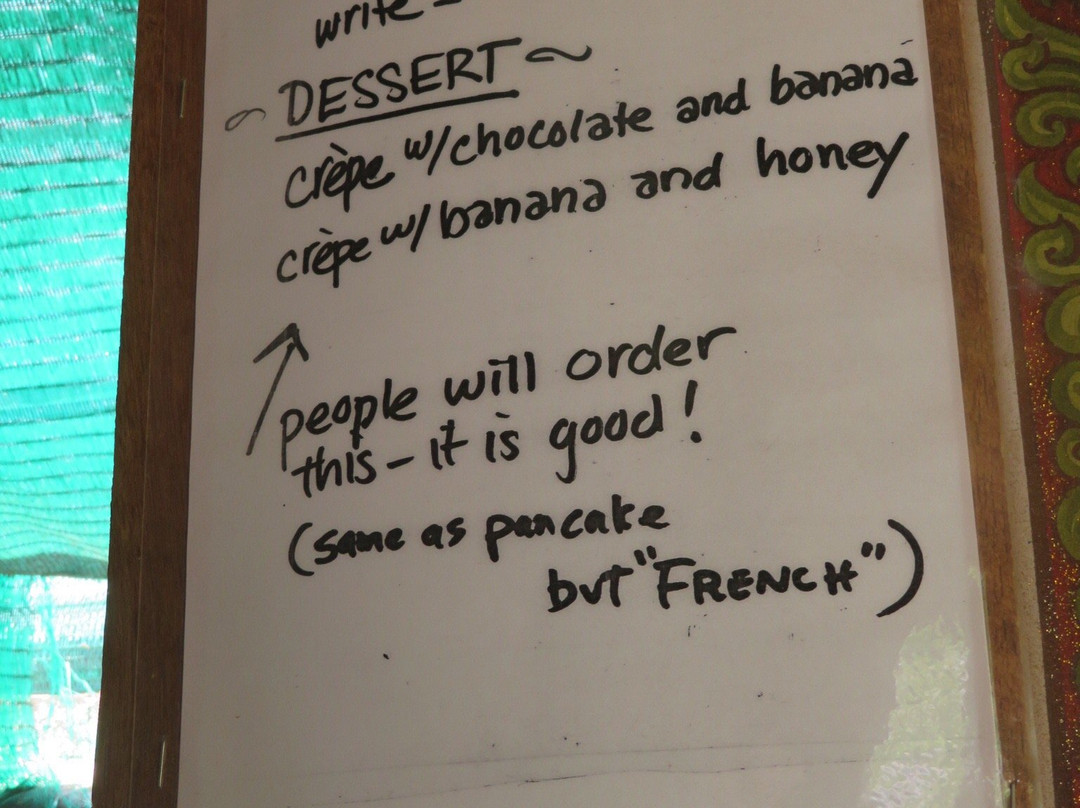 write -
~ DESSERT ~
crèpe w/chocolate and banana
crèpe w/ banana and honey
people will order
this - it is good!
(same as pancake
but "FRENCH")